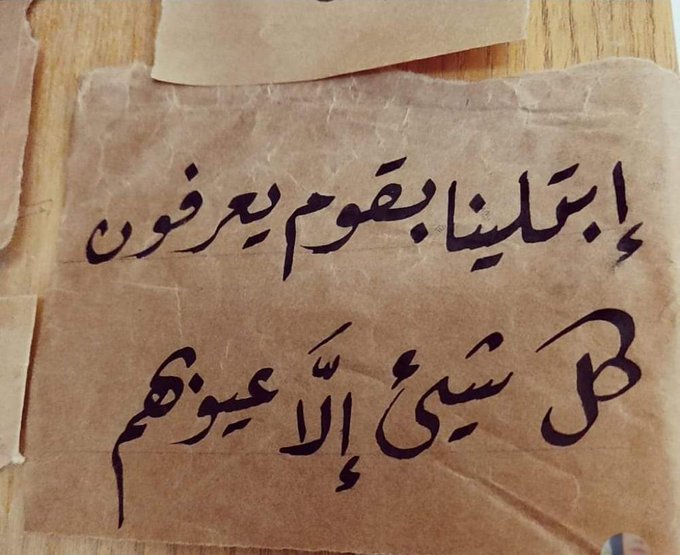 إبتلينا بقوم يعرفون
كل شيئ إلَّا عيوبهم